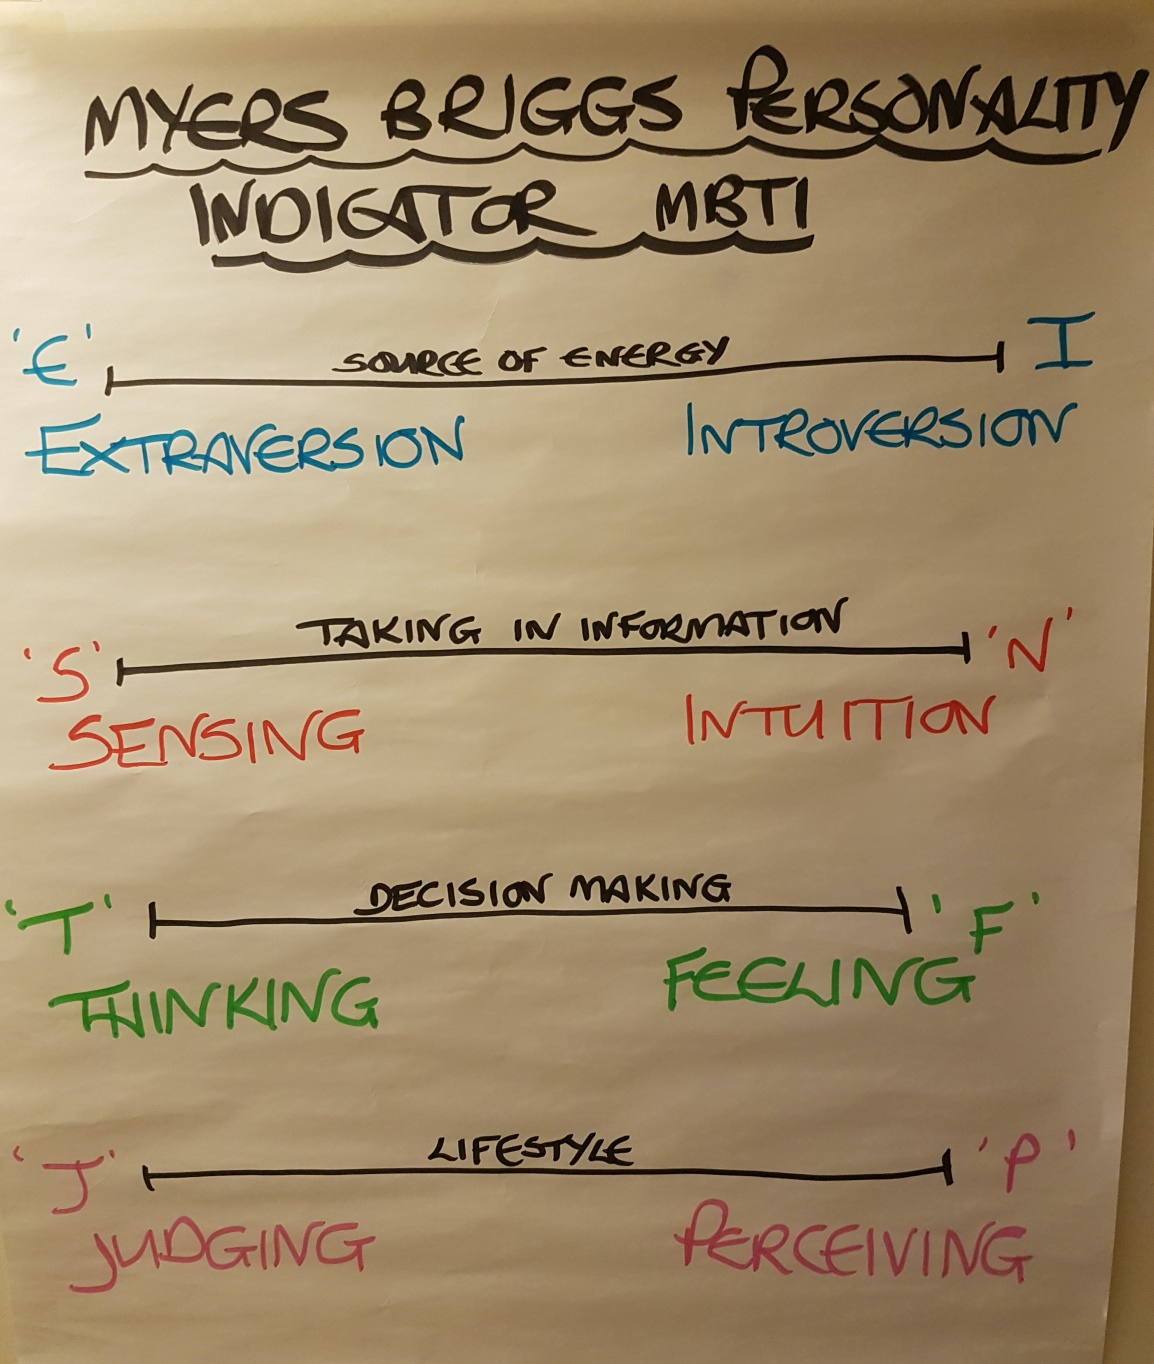 MYERS BRIGGS PERSONALITY
INDICATOR MBTI
'E' SOURCE OF ENERGY I
EXTRAVERSION INTROVERSION
'S' TAKING IN INFORMATION 'N'
SENSING INTUITION
'T' DECISION MAKING 'F'
THINKING FEELING
'J' LIFESTYLE 'P'
JUDGING PERCEIVING